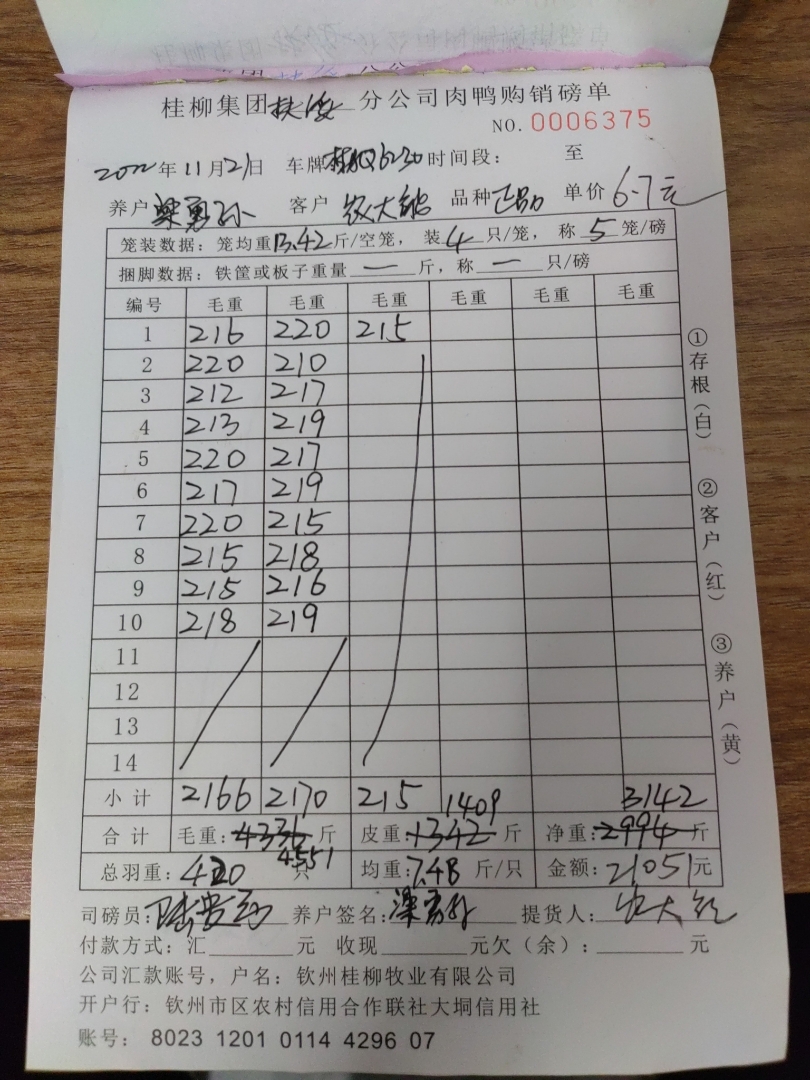 桂柳集团扶绥分公司肉鸭购销磅单
NO. 0006375
2022年11月21日 车牌Q6230时间段： 至
养户梁勇孙 客户农大能 品种正品 单价6.7元
笼装数据：笼均重13.42斤/空笼，装4只/笼，称5笼/磅
捆脚数据：铁筐或板子重量一斤，称一只/磅
编号 毛重 毛重 毛重 毛重 毛重 毛重
1 216 220 215
2 220 210
3 212 217
4 213 219
5 220 217
6 217 219
7 220 215
8 215 218
9 215 216
10 218 219
11
12
13
14
小计 2166 2170 215 1409 3142
合计 毛重：4336斤 皮重：1342斤 净重：2994斤
4551
总羽重：420只 均重：7.48斤/只 金额：21051元
司磅员： 养户签名：梁勇孙 提货人：农大能
付款方式：汇 元 收现 元欠（余）： 元
公司汇款账号，户名：钦州桂柳牧业有限公司
开户行：钦州市区农村信用合作联社大垌信用社
账号： 8023 1201 0114 4296 07
①存根（白）
②客户（红）
③养户（黄）